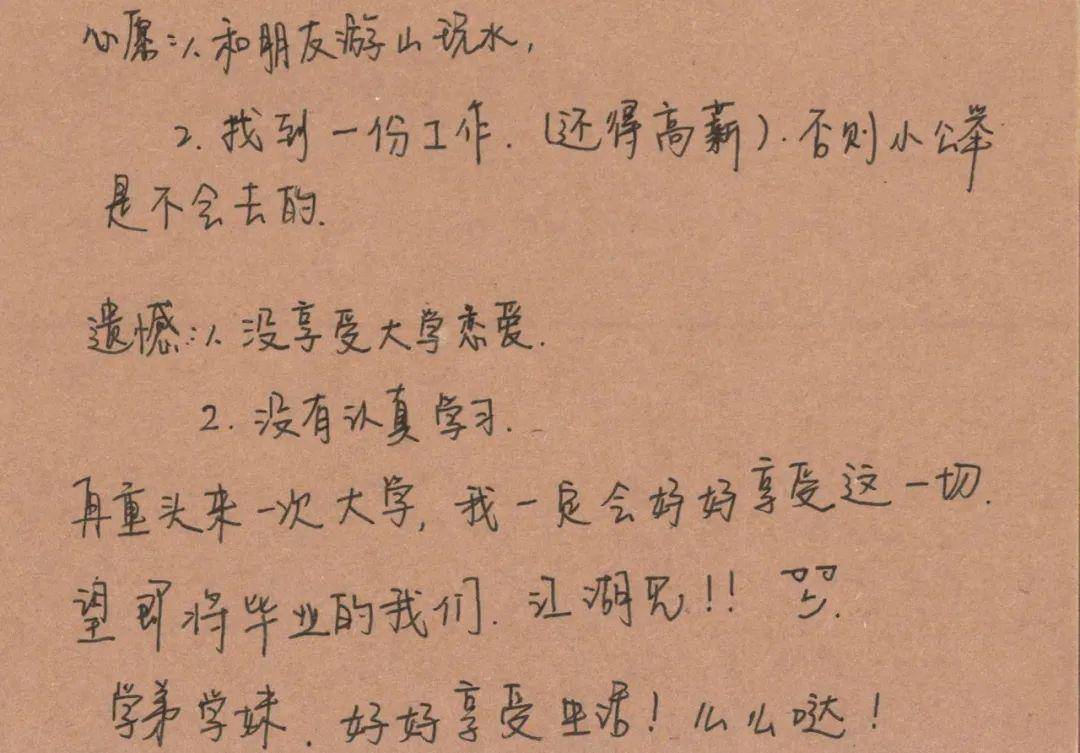 心愿:1.和朋友游山玩水,
2.找到一份工作.(还得高薪).否则小公举
是不会去的.
遗憾:1.没享受大学恋爱.
2.没有认真学习.
再重头来一次大学,我一定会好好享受这一切.
望即将毕业的我们.江湖见!!
学弟学妹.好好享受生活!么么哒!